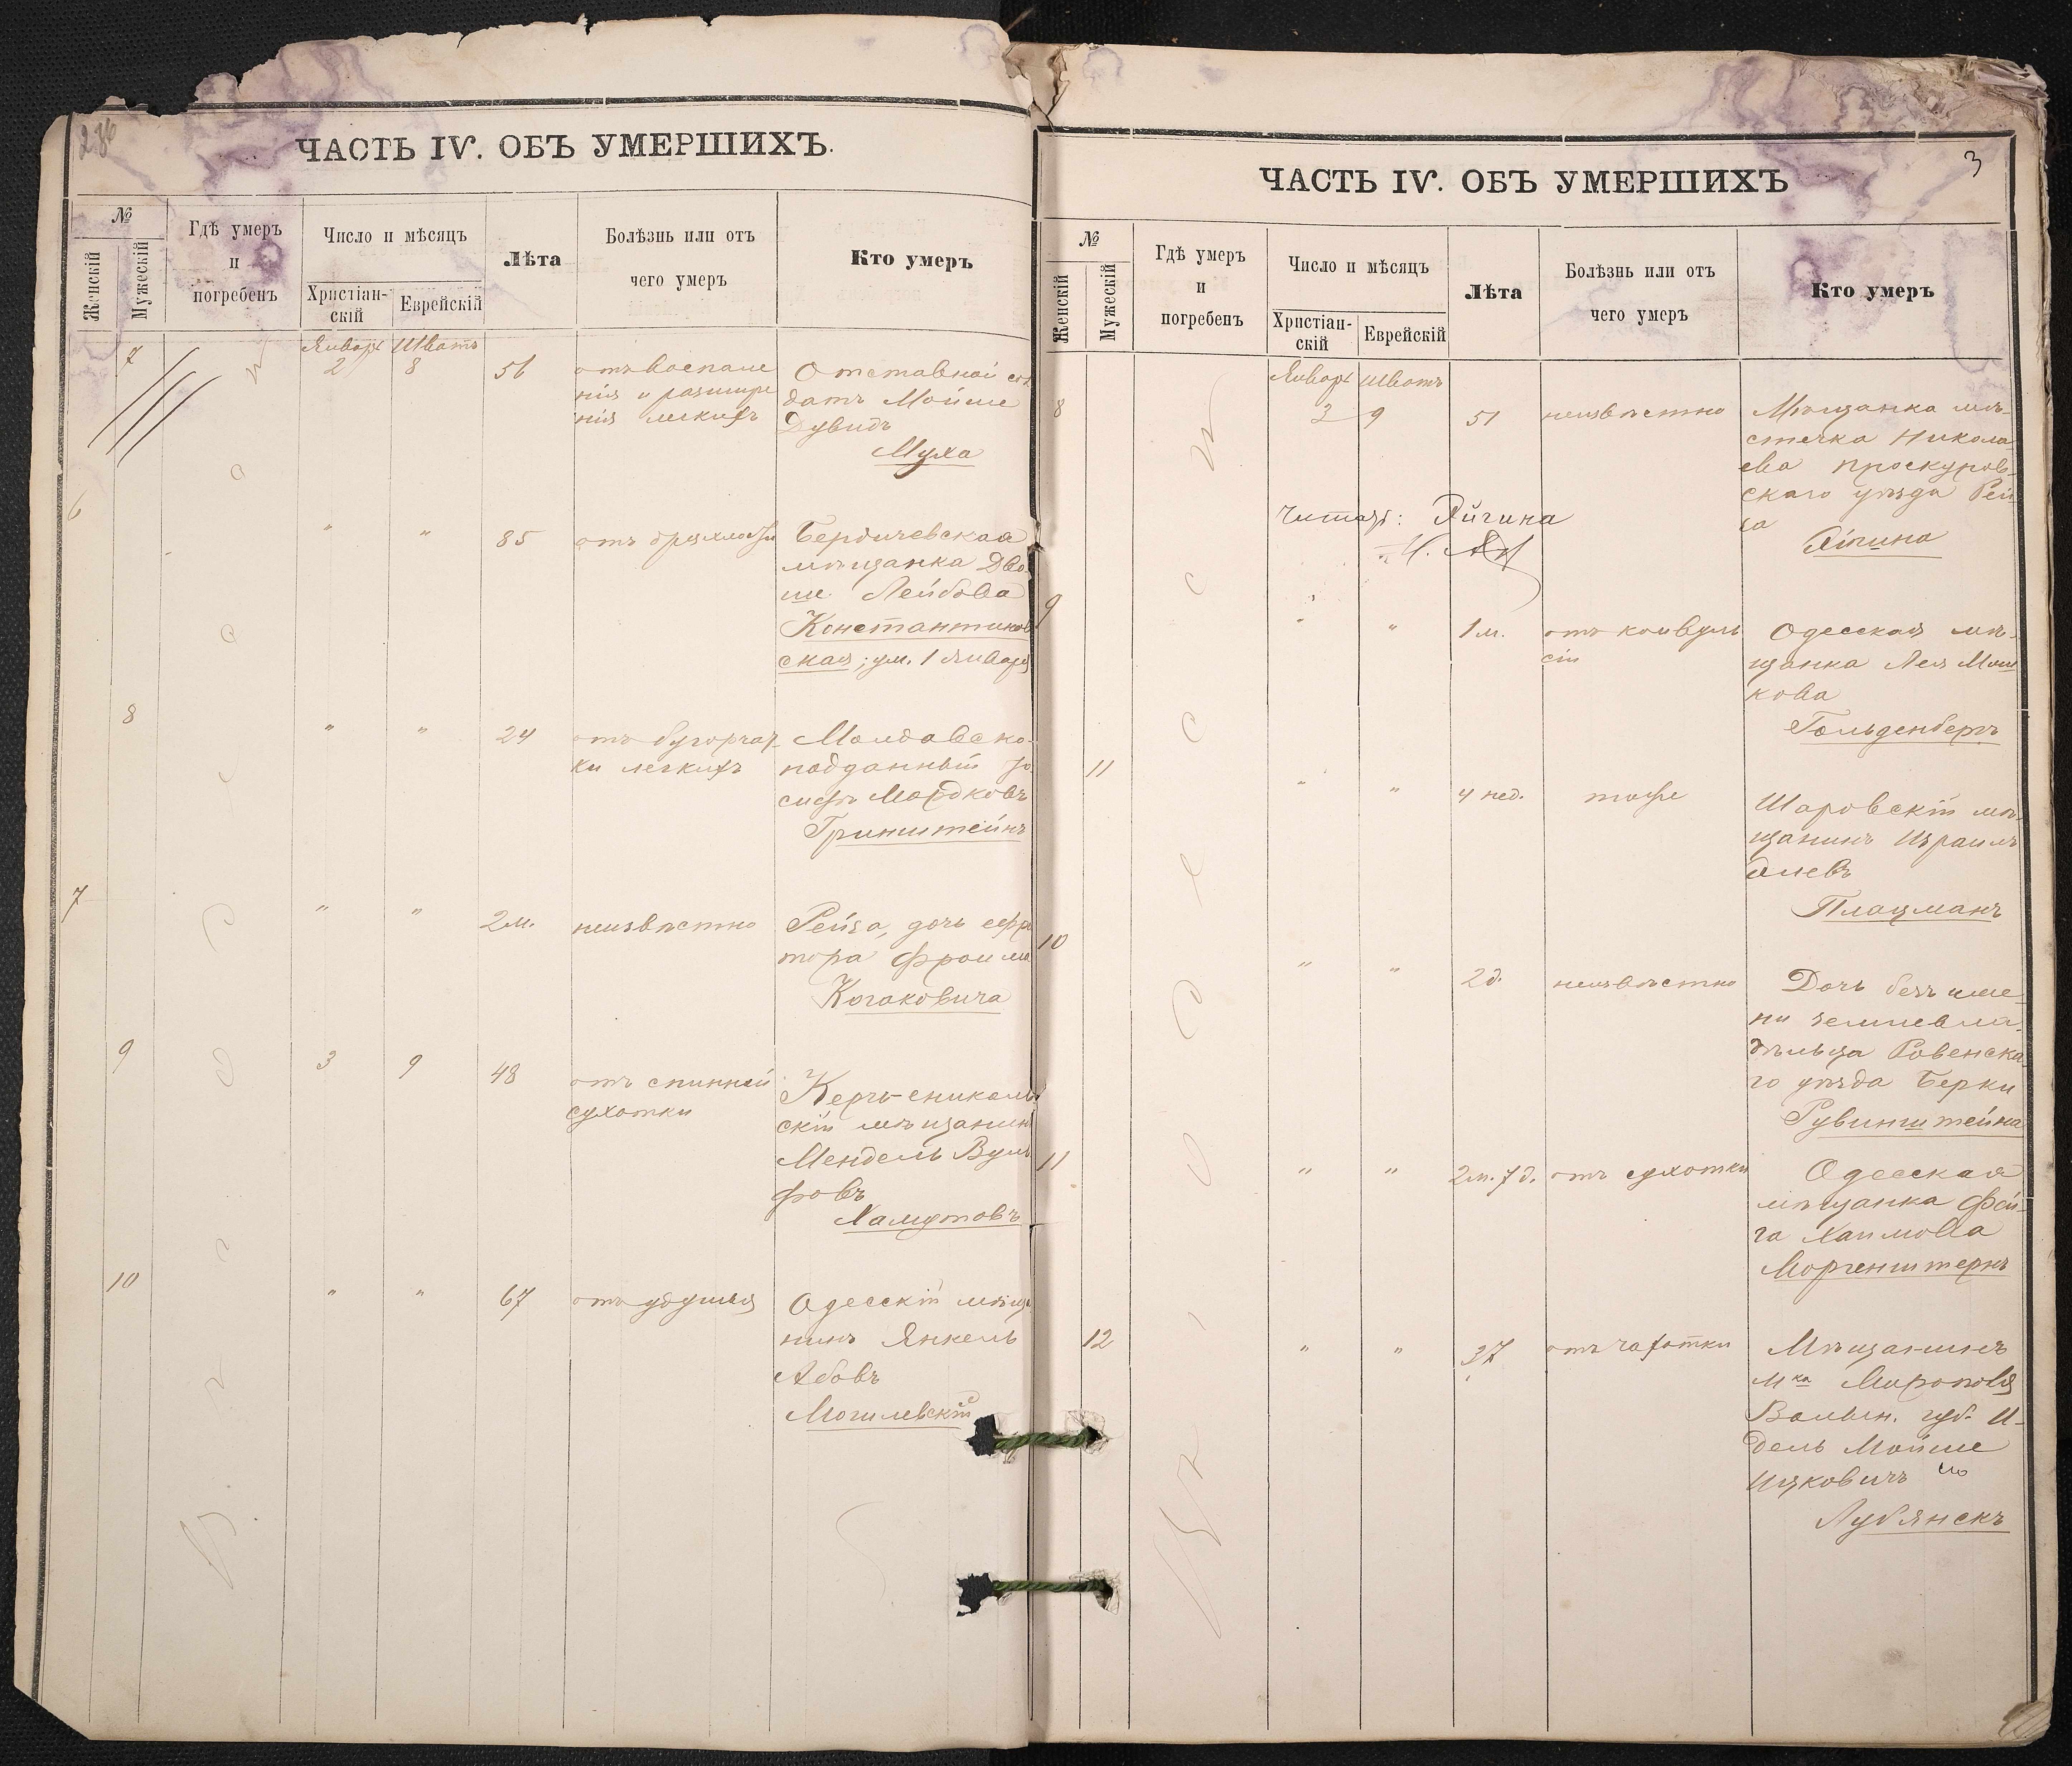 236
ЧАСТЬ IV. ОБЪ УМЕРШИХЪ.
№
Женскій
Мужескій
Гдѣ умеръ
и
погребенъ
Число и мѣсяцъ
Христіан-
скій
Еврейскій
Лѣта
Болѣзнь или отъ
чего умеръ
Кто умеръ
Январь Шватъ
7 2 8 56 отъ воспале
нія и расшире
нія легкихъ
Отставной сол
датъ Мойше
Дувидъ
Муха
6 " " 85 отъ дряхлости
Бердичевская
мѣщанка Дво
ше Лейбова
Константинов
ская; ум. 1 января
8 " " 24 отъ бугорчат
ки легкихъ
Молдавско-
подданный Іо
сифъ Мордковъ
Гринштейнъ
7 " " 2 м. неизвѣстно
Рейза, дочь ефре
тора Фроима
Когаковича
9 3 9 48 отъ спинной
сухотки
Керчь-еникаль
скій мѣщанинъ
Мендель Вуль
фовъ
Хамутовъ
10 " " 67 отъ удушья
Одесскій мѣща
нинъ Янкель
Абовъ
Могилевскій
Въ городѣ Одессѣ
3
ЧАСТЬ IV. ОБЪ УМЕРШИХЪ
№
Женскій
Мужескій
Гдѣ умеръ
и
погребенъ
Число и мѣсяцъ
Христіан-
скій
Еврейскій
Лѣта
Болѣзнь или отъ
чего умеръ
Кто умеръ
Январь Шватъ
8 3 9 51 неизвѣстно
Мѣщанка мѣ-
стечка Никола
ева Проскуров-
скаго уѣзда Рей
за
Айгина
Читать: Айгина
9 " " 1 м. отъ конвуль
сіи
Одесская мѣ-
щанка Лея Мош
кова
Гольденбергъ
11 " " 4 нед. тоже
Шаровскій мѣ
щанинъ Израиль
Плацманъ
10 " " 2 д. неизвѣстно
Дочь безъ име
ни землевла
дѣльца Ровенска
го уѣзда Берки
Рувинштейна
11 " " 2 м. 7 д. отъ сухотки
Одесская
мѣщанка Фей-
га Хаимова
Моргенштернъ
12 " " 37 отъ чахотки
Мѣщанинъ
мка Мирополя
Волын. губ. И-
дель Мойше
Ицковичъ
Лубянскъ